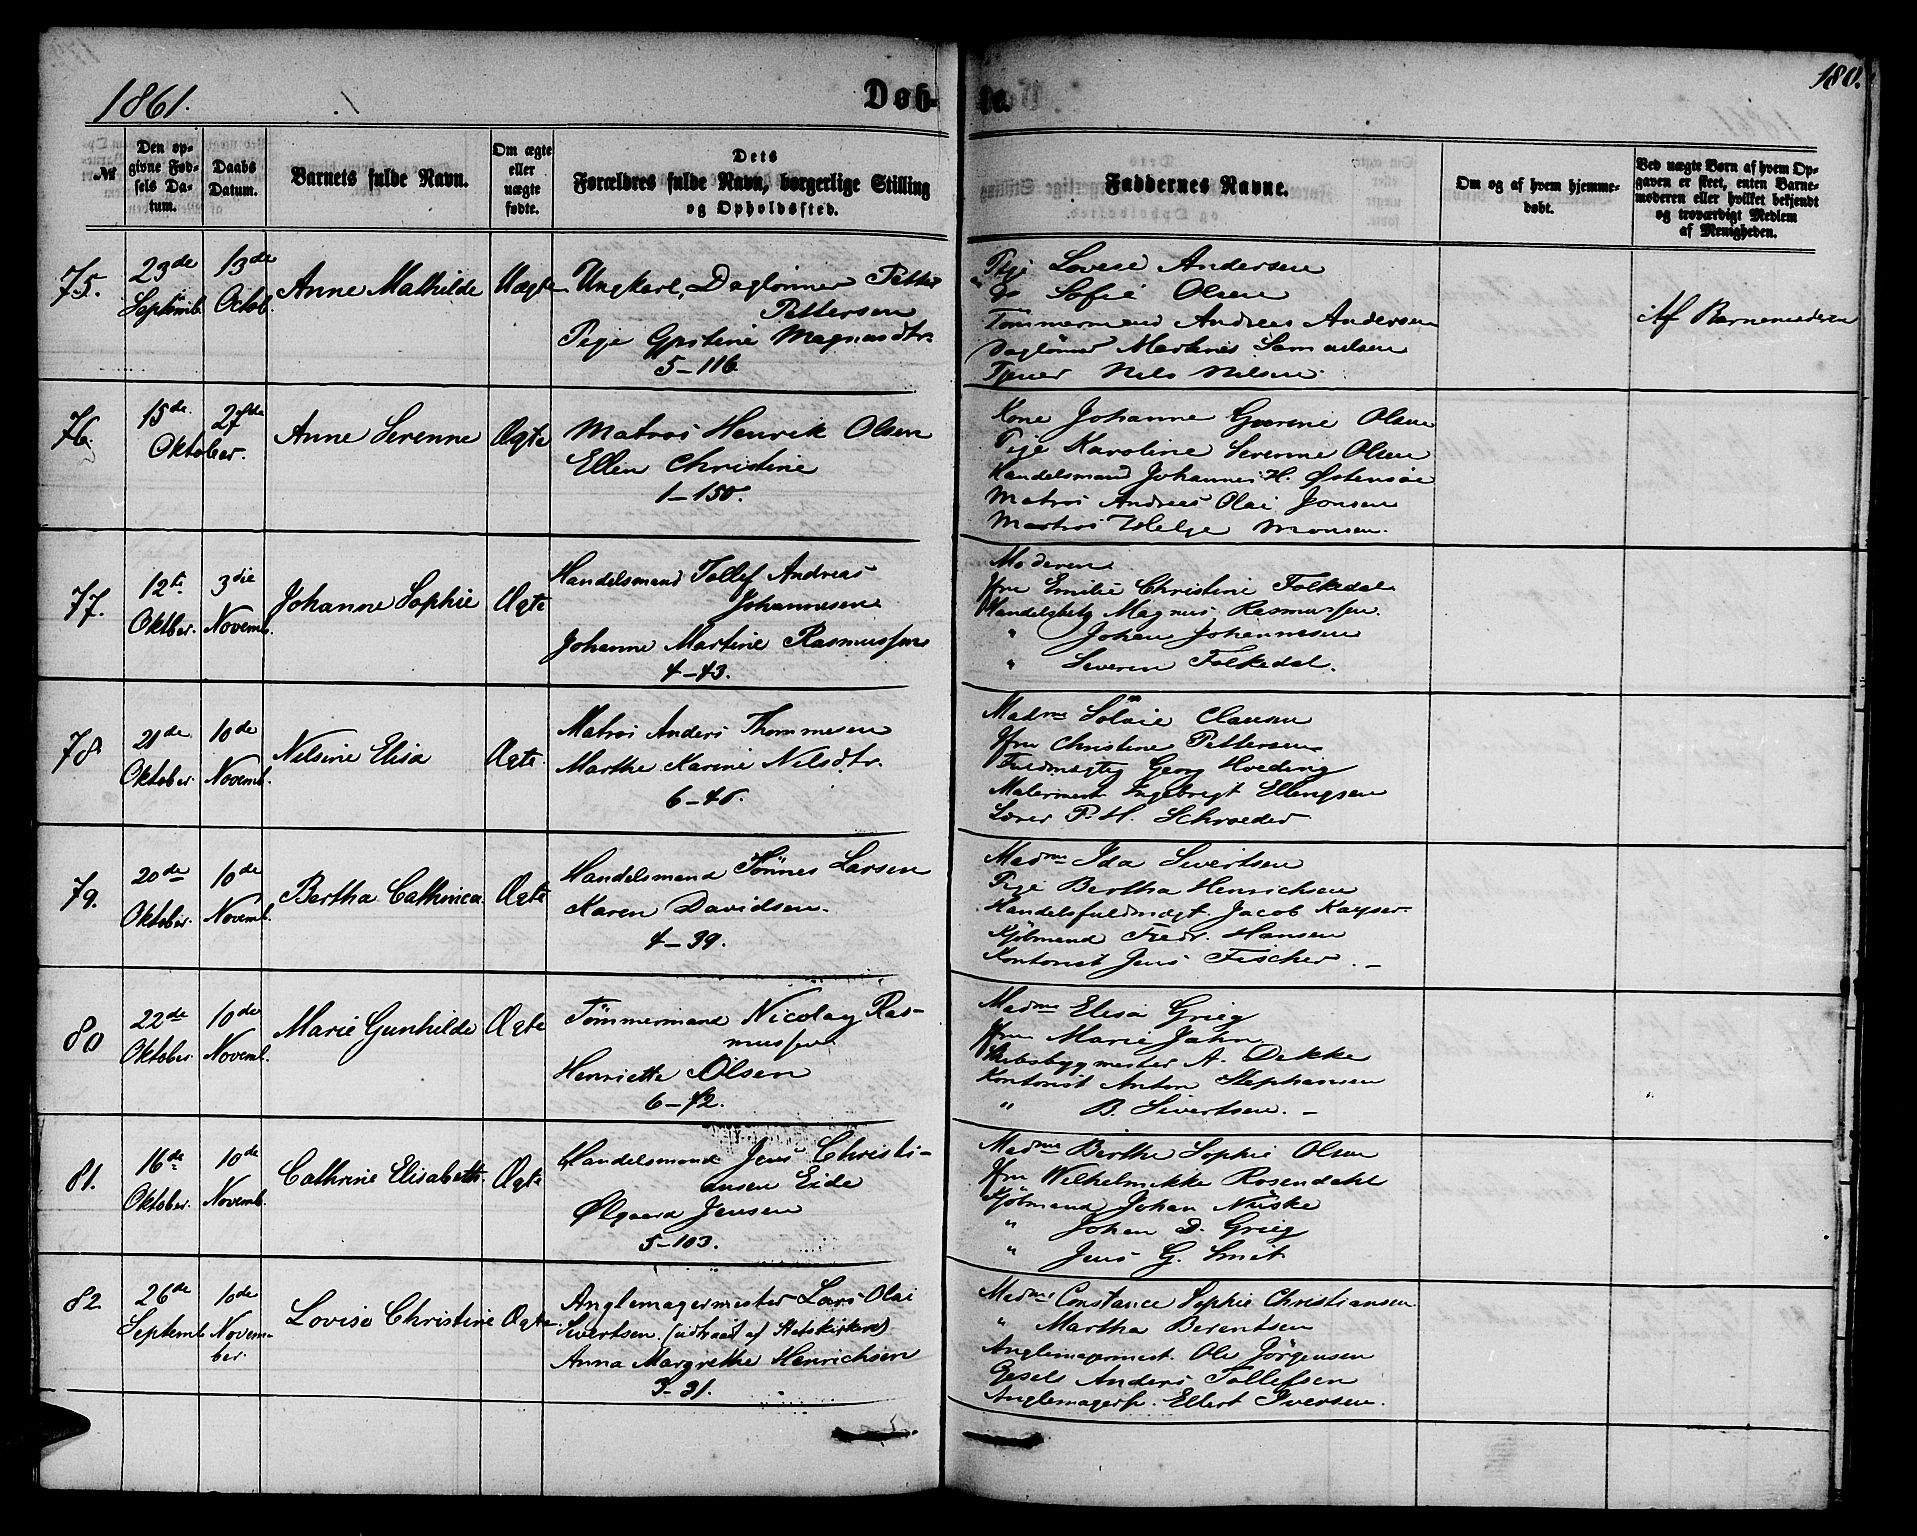 1861.
Døb-
te.
180.
№
Den op-
givne Fød-
sels Da-
tum.
Daabs
Datum.
Barnets fulde Navn.
Om ægte
eller
uægte
fødte.
Dets
Forældres fulde Navn, borgerlige Stilling
og Opholdssted.
Faddernes Navne.
Om og af hvem hjemme-
døbt.
Ved uægte Børn af hvem Op-
gaven er skeet, enten Barne-
moderen eller hvilket bekjendt
og troværdigt Medlem
af Menigheden.
75.
23de
Septemb.
13de
Octob.
Anne Mathilde
Uægte
Ungkarl, Daglønner Petter
Pettersen
Pige Gjertine Magnusdtr.
5-116.
Pige Lovise Andersen
" Sofie Olsen
Tømmermand Andreas Andersen
Daglønner Martines Samuelsen
Tjener Nels Nelsen.
Af Barnemoderen
76.
15de
27de
Oktober.
Anne Serenne
Ægte
Matros Henrik Olsen
Ellen Christine
1-150.
Kone Johanne Gurine Olsen
Pige Karoline Serenne Olsen
Handelsmand Johannes H. Østensøe
Matros Andreas Olai Jonsen
Matros Helge Monsen.
77.
12te
Oktber.
3die
Novemb.
Johanne Sophie
Ægte
Handelsmand Tollef Andreas
Johannesen
Johanne Martine Rasmussen
4-43.
Moderen
Jfru Emilie Christine Folkedal
Handelsbetj Magnus Rasmussen.
" Johan Johannesen
" Severin Folkedal.
78
21de
Oktober.
10de
Novemb.
Nelsine Elisa
Ægte.
Matros Anders Thommesen
Marthe Karine Nelsdtr.
6-46.
Madme Sölvie Clausen
Jfru Christine Pettersen
Fuldmægtig Georg Hveding
Malermest. Ingebrigt Ellingsen
Lærer P. H. Schrøeder
79.
20de
Oktober.
10de
Novemb.
Bertha Cathinca
Ægte
Handelsmand Tönnes Larsen
Karen Davidsen.
4-39.
Madme Ida Sivertsen
Pige Bertha Henrichsen
Handelsfuldmægt. Jacob Kayser.
Kjøbmand Fredr. Hansen
Kontorist Jens Fischer.
80
22de
Oktober.
10de
Novemb.
Marie Gunhilde
Ægte
Tømmermand Nicolay Ras-
mussen
Henriette Olsen
6-72.
Madme Elisa Grieg
Jfru Marie Jahn
Skibsbyggmester A. Dekke
Kontorist Anton Stephansen
" B. Sivertsen.
81.
16de
Oktober.
10de
Novemb.
Cathrine Elisabeth.
Ægte
Handelsmand Jens Christi-
ansen Eide
Ølgaard Jensen
5-103.
Madme Berthe Sophie Olsen
Jfru Wilhelmikke Rosendahl
Kjøbmand Johan Nüske
" Johan D. Grieg
" Jens G. Smit
82
26de
Septemb
10de
Novem-
ber.
Lovise Christine
Ægte.
Anglemagermester Lars Olai
Sivertsen. (udtraadt af Statskirken)
Anna Margrethe Henrichsen
3-31.
Madme Constance Sophie Christiansen
" Martha Berentsen
Anglemagermest. Ole Jørgensen
Gesel Anders Tollefsen
Anglemagersv. Ellert Iversen.